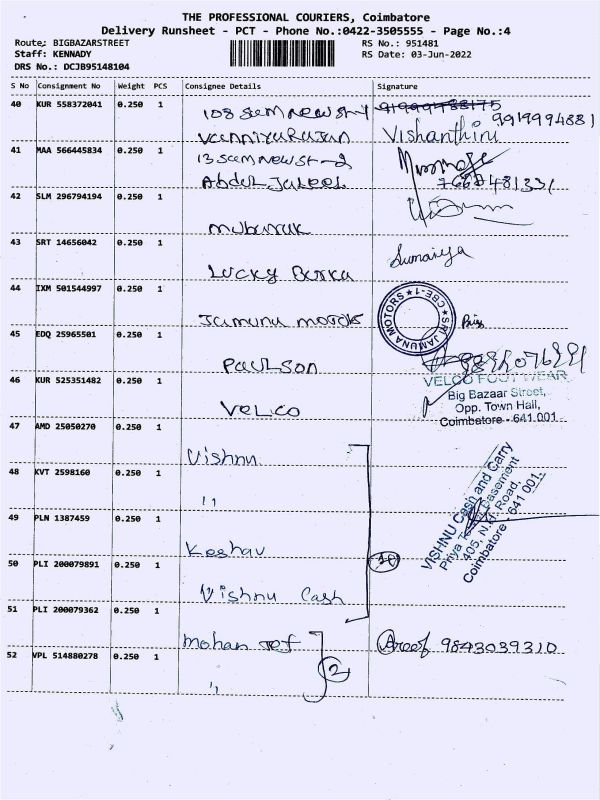 THE PROFESSIONAL COURIERS, Coimbatore
Delivery Runsheet - PCT - Phone No.:0422-3505555 - Page No.:4
Route: BIGBAZARSTREET RS No.: 951481
Staff: KENNADY RS Date: 03-Jun-2022
DRS No.: DCJB95148104
S No Consignment No Weight PCS Consignee Details Signature
40 KUR 558372041 0.250 1 9199994881
Vishanthini
41 MAA 566445834 0.250 1
Abdul Jaleel
42 SLM 296794194 0.250 1
mubaruk
43 SRT 14656042 0.250 1 Sumaiya
Lucky Burka
44 IXM 501544997 0.250 1
Jamuna motors
SRI JAMUNA MOTORS ★ CBE-1 ★
45 EDQ 25965501 0.250 1
Paulson
46 KUR 525351482 0.250 1 VELCO FOOT WEAR
Big Bazaar Street,
Velco Opp. Town Hall,
Coimbatore - 641 001.
47 AMD 25050270 0.250 1
Vishnu
48 KVT 2598160 0.250 1
"
VISHNU Cash and Carry
Priya Tower Basement
405, N.H. Road,
Coimbatore - 641 001.
49 PLN 1387459 0.250 1
Keshav
50 PLI 200079891 0.250 1
Vishnu Cash
51 PLI 200079362 0.250 1
mohan Aroof 9843039310
52 VPL 514880278 0.250 1 2
"